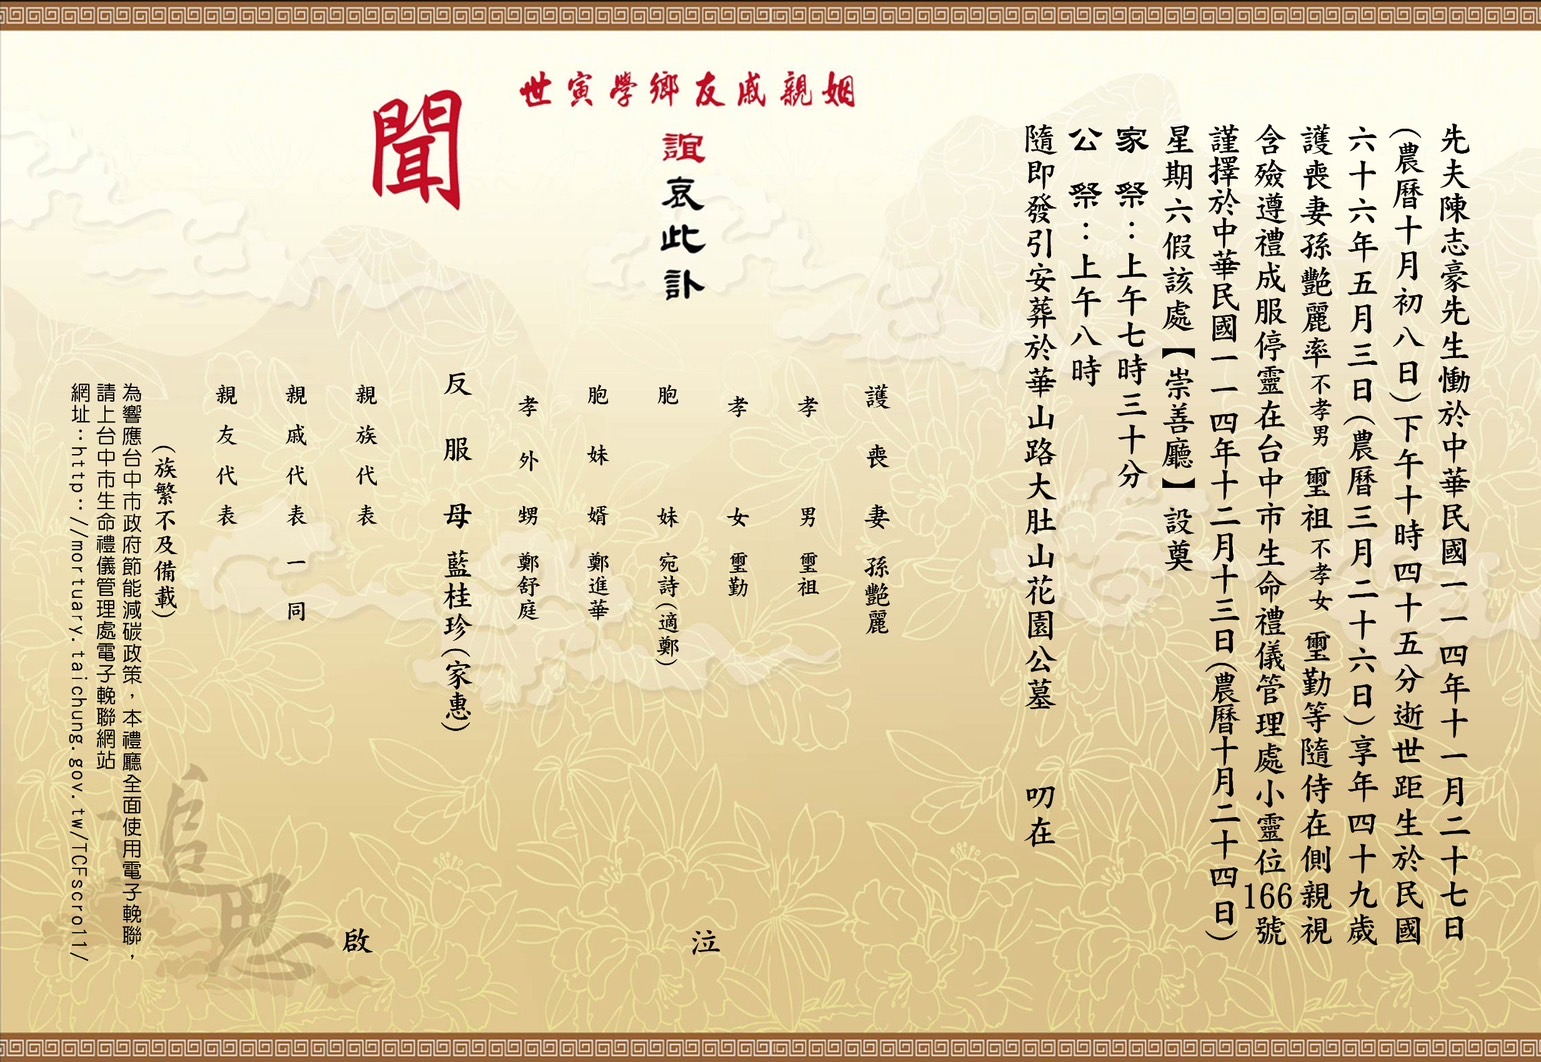 先夫陳志豪先生慟於中華民國一一四年十一月二十七日
(農曆十月初八日)下午十時四十五分逝世距生於民國
六十六年五月三日(農曆三月二十六日)享年四十九歲
護喪妻孫艷麗率不孝男 璽祖不孝女 璽勤等隨侍在側親視
含殮遵禮成服停靈在台中市生命禮儀管理處小靈位166號
謹擇於中華民國一一四年十二月十三日(農曆十月二十四日)
星期六假該處【崇善廳】設奠
家 祭：上午七時三十分
公 祭：上午八時
隨即發引安葬於華山路大肚山花園公墓 叨在
姻親戚友鄉學寅世
誼哀此訃
聞
護喪妻 孫艷麗
孝男 璽祖
孝女 璽勤
胞妹 宛詩(適鄭)
胞妹婿 鄭進華
孝外甥 鄭舒庭
泣
反服母 藍桂珍(家惠)
親族代表
親戚代表 一同
親友代表
啟
(族繁不及備載)
為響應台中市政府節能減碳政策，本禮廳全面使用電子輓聯，
請上台中市生命禮儀管理處電子輓聯網站
網址：http://mortuary.taichung.gov.tw/TCFscroll/
追思